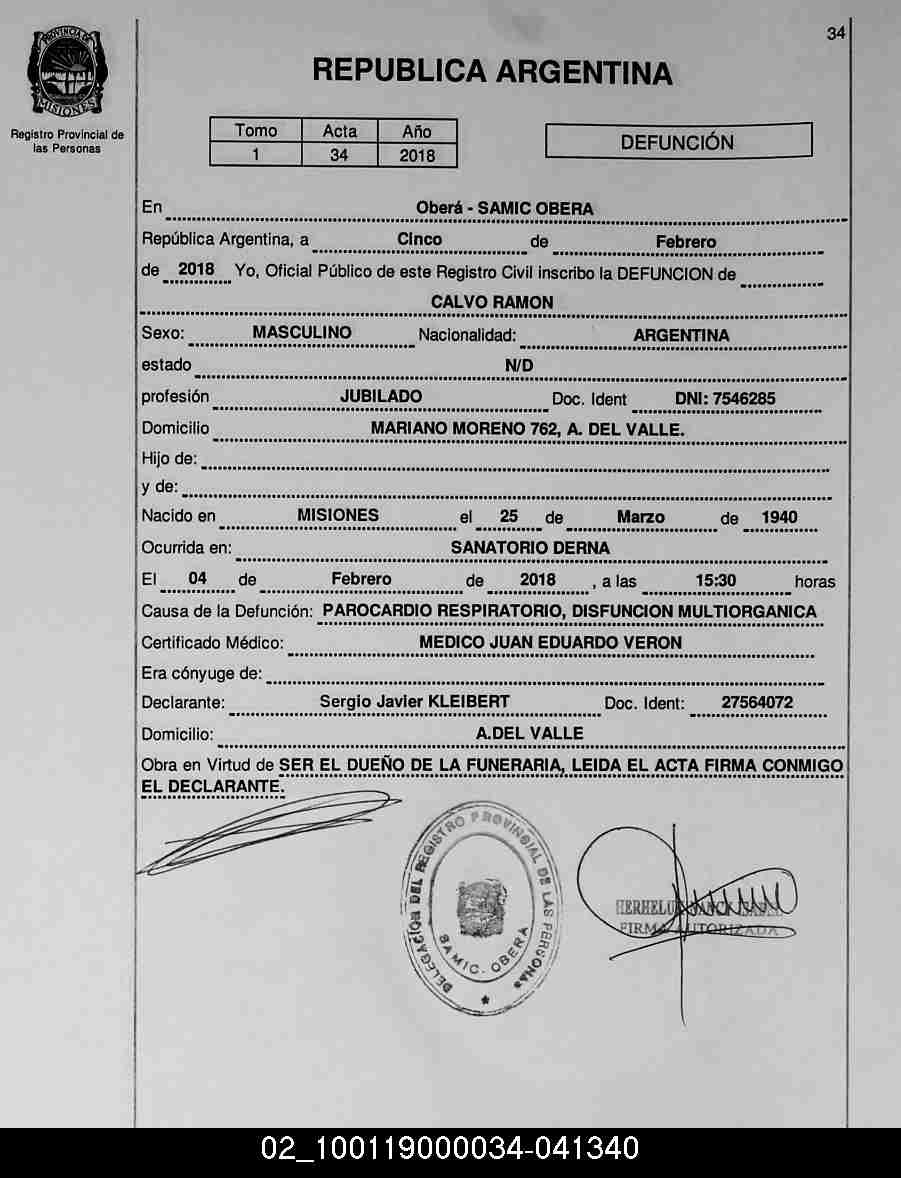 34
PROVINCIA DE
MISIONES
Registro Provincial de
las Personas
REPUBLICA ARGENTINA
Tomo Acta Año
1 34 2018
DEFUNCIÓN
En Oberá - SAMIC OBERA
República Argentina, a Cinco de Febrero
de 2018 Yo, Oficial Público de este Registro Civil inscribo la DEFUNCION de
CALVO RAMON
Sexo: MASCULINO Nacionalidad: ARGENTINA
estado N/D
profesión JUBILADO Doc. Ident DNI: 7546285
Domicilio MARIANO MORENO 762, A. DEL VALLE.
Hijo de:
y de:
Nacido en MISIONES el 25 de Marzo de 1940
Ocurrida en: SANATORIO DERNA
El 04 de Febrero de 2018 , a las 15:30 horas
Causa de la Defunción: PAROCARDIO RESPIRATORIO, DISFUNCION MULTIORGANICA
Certificado Médico: MEDICO JUAN EDUARDO VERON
Era cónyuge de:
Declarante: Sergio Javier KLEIBERT Doc. Ident: 27564072
Domicilio: A.DEL VALLE
Obra en Virtud de SER EL DUEÑO DE LA FUNERARIA, LEIDA EL ACTA FIRMA CONMIGO
EL DECLARANTE.
DELEGACION DEL REGISTRO PROVINCIAL DE LAS PERSONAS
SAMIC. OBERA
FIRMA AUTORIZADA
02_100119000034-041340